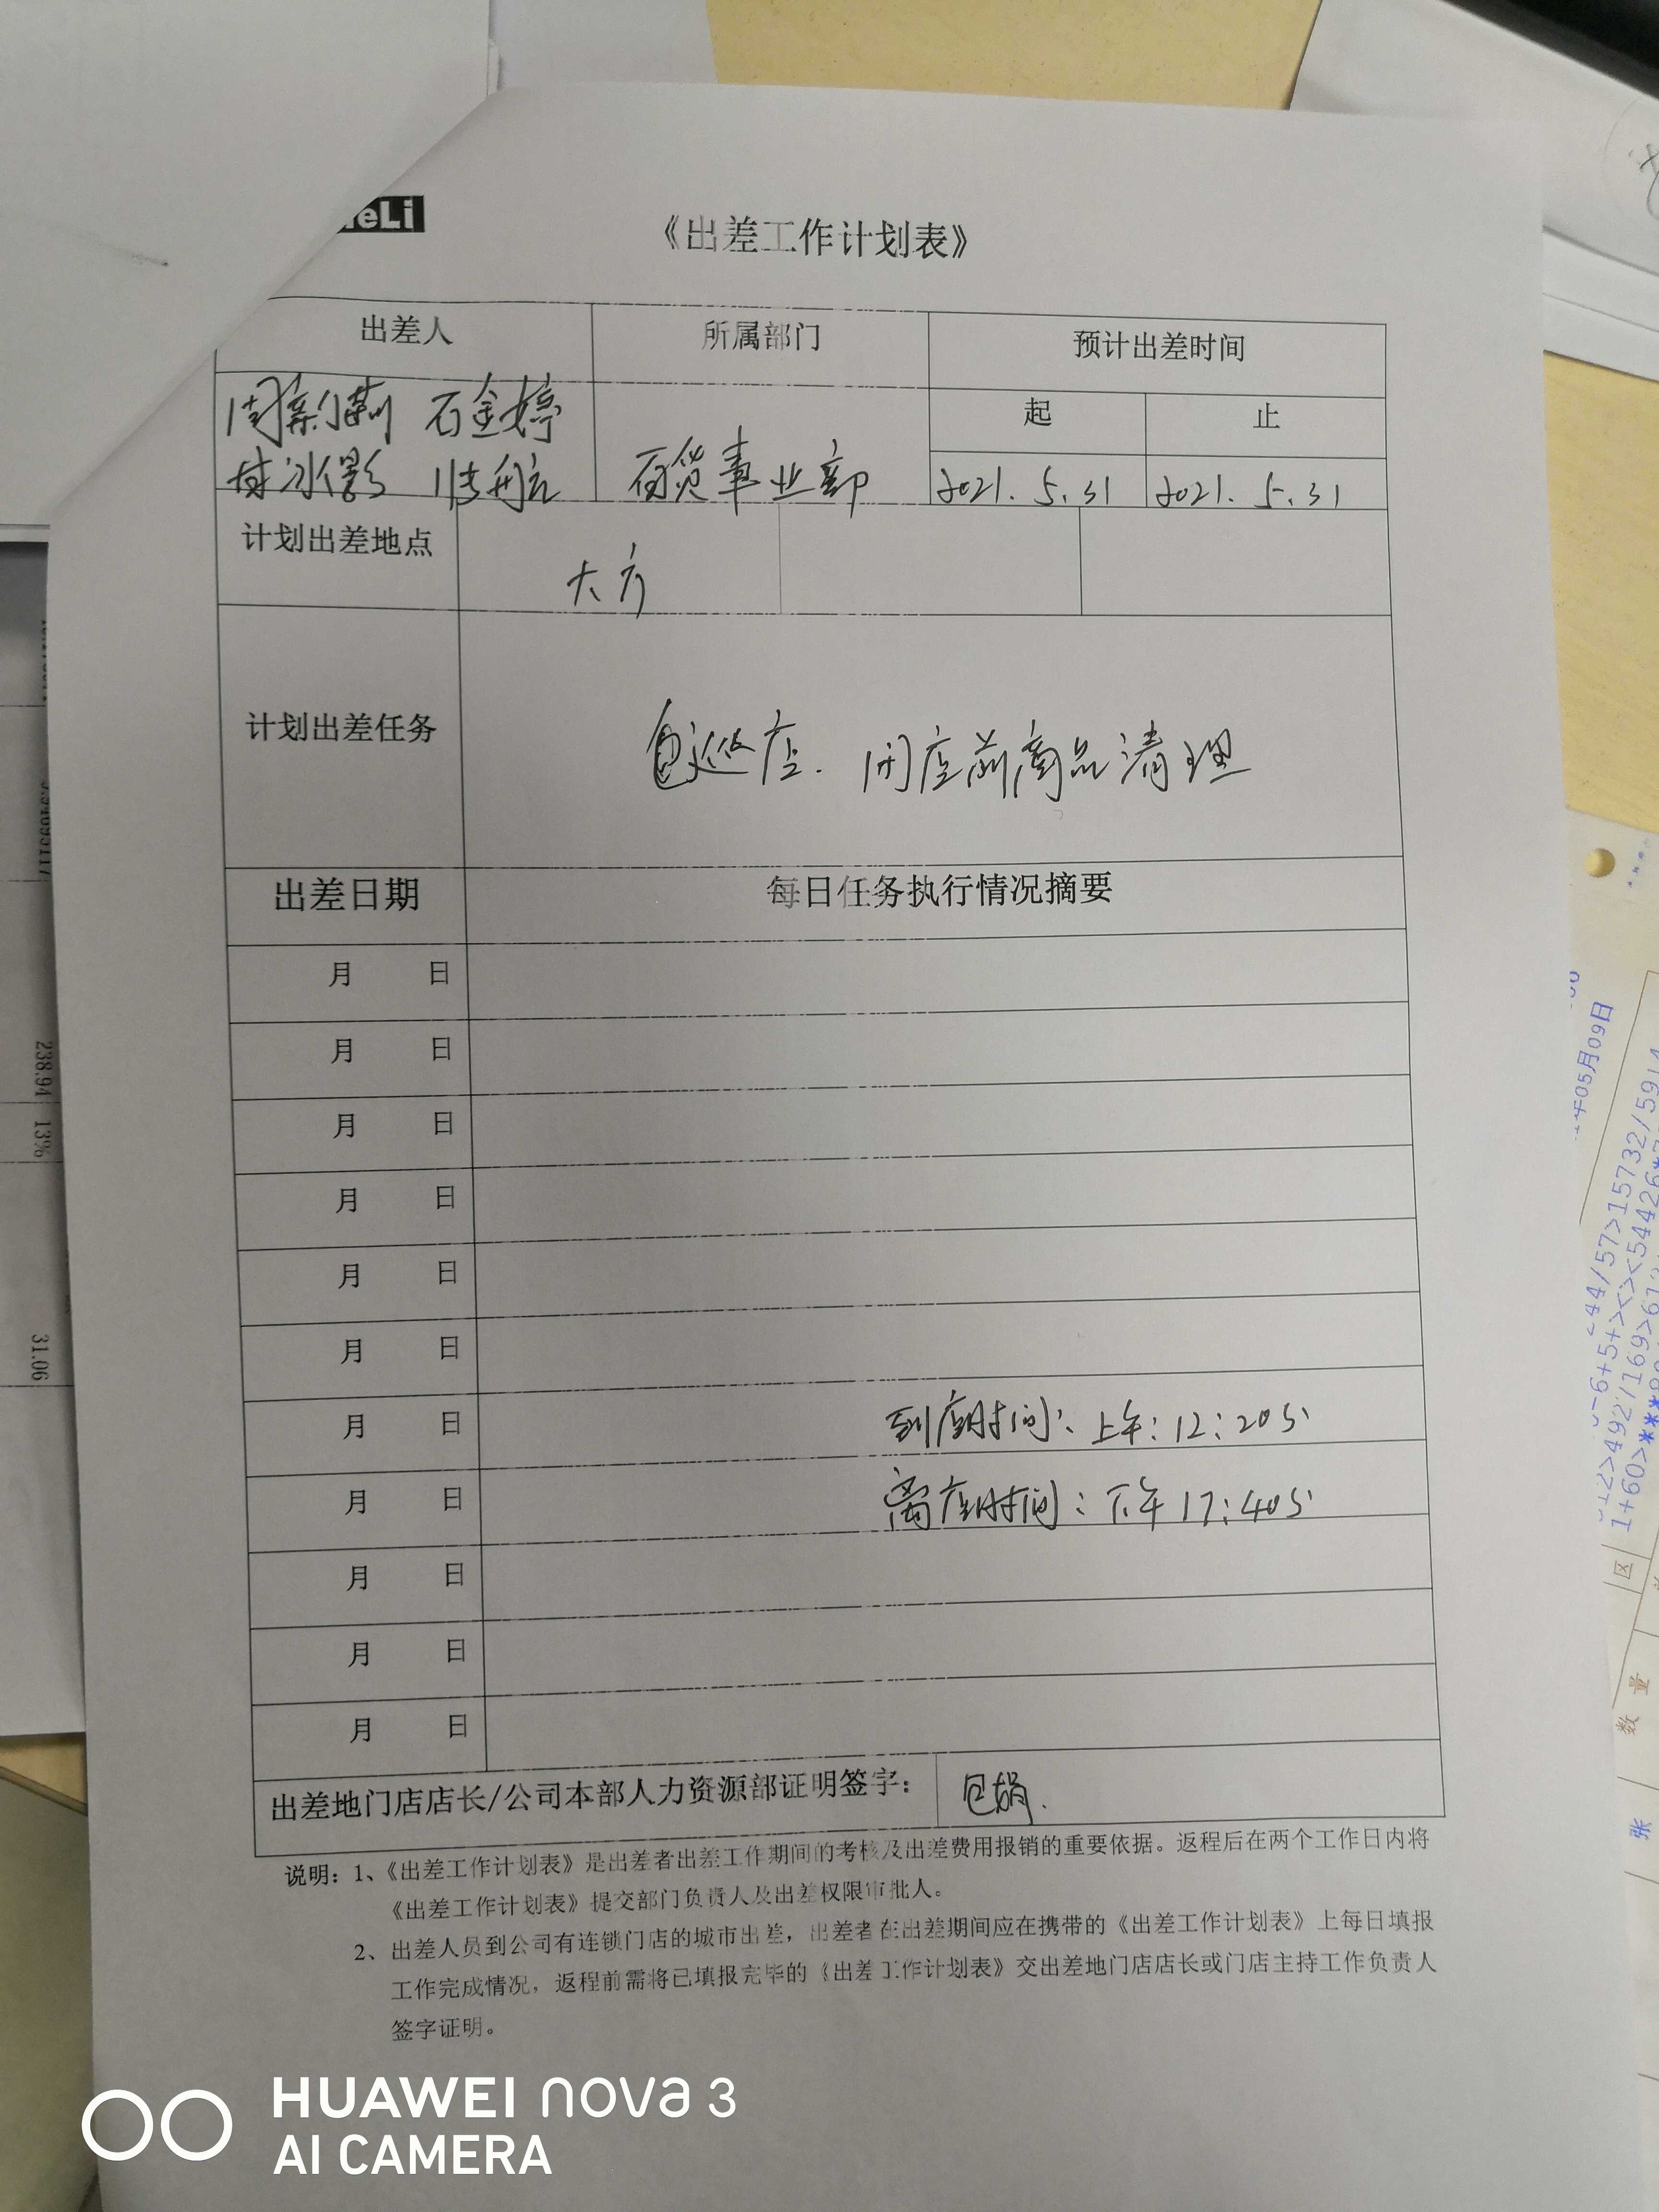 eLi
《出差工作计划表》
出差人 所属部门 预计出差时间
起 止
石金婷
百货事业部 2021. 5.31 2021. 5.31
计划出差地点 大方
计划出差任务 巡店. 闭店前商品清理
出差日期 每日任务执行情况摘要
月 日
月 日
月 日
月 日
月 日
月 日
月 日 到店时间: 上午: 12:20分
月 日 离店时间: 下午17:40分
月 日
月 日
月 日
出差地门店店长/公司本部人力资源部证明签字:
说明: 1、《出差工作计划表》是出差者出差工作期间的考核及出差费用报销的重要依据。返程后在两个工作日内将
《出差工作计划表》提交部门负责人及出差权限审批人。
2、出差人员到公司有连锁门店的城市出差，出差者在出差期间应在携带的《出差工作计划表》上每日填报
工作完成情况，返程前需将已填报完毕的《出差工作计划表》交出差地门店店长或门店主持工作负责人
签字证明。
238.94 13%
31.06
05月09日
区
数量
张
HUAWEI nova 3
AI CAMERA